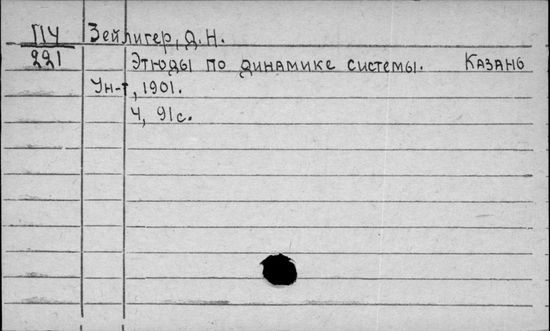 ПЧ Зейлигер, Д. Н.
221 Этюды по динамике системы. Казань
Ун-т, 1901.
4, 91 с.